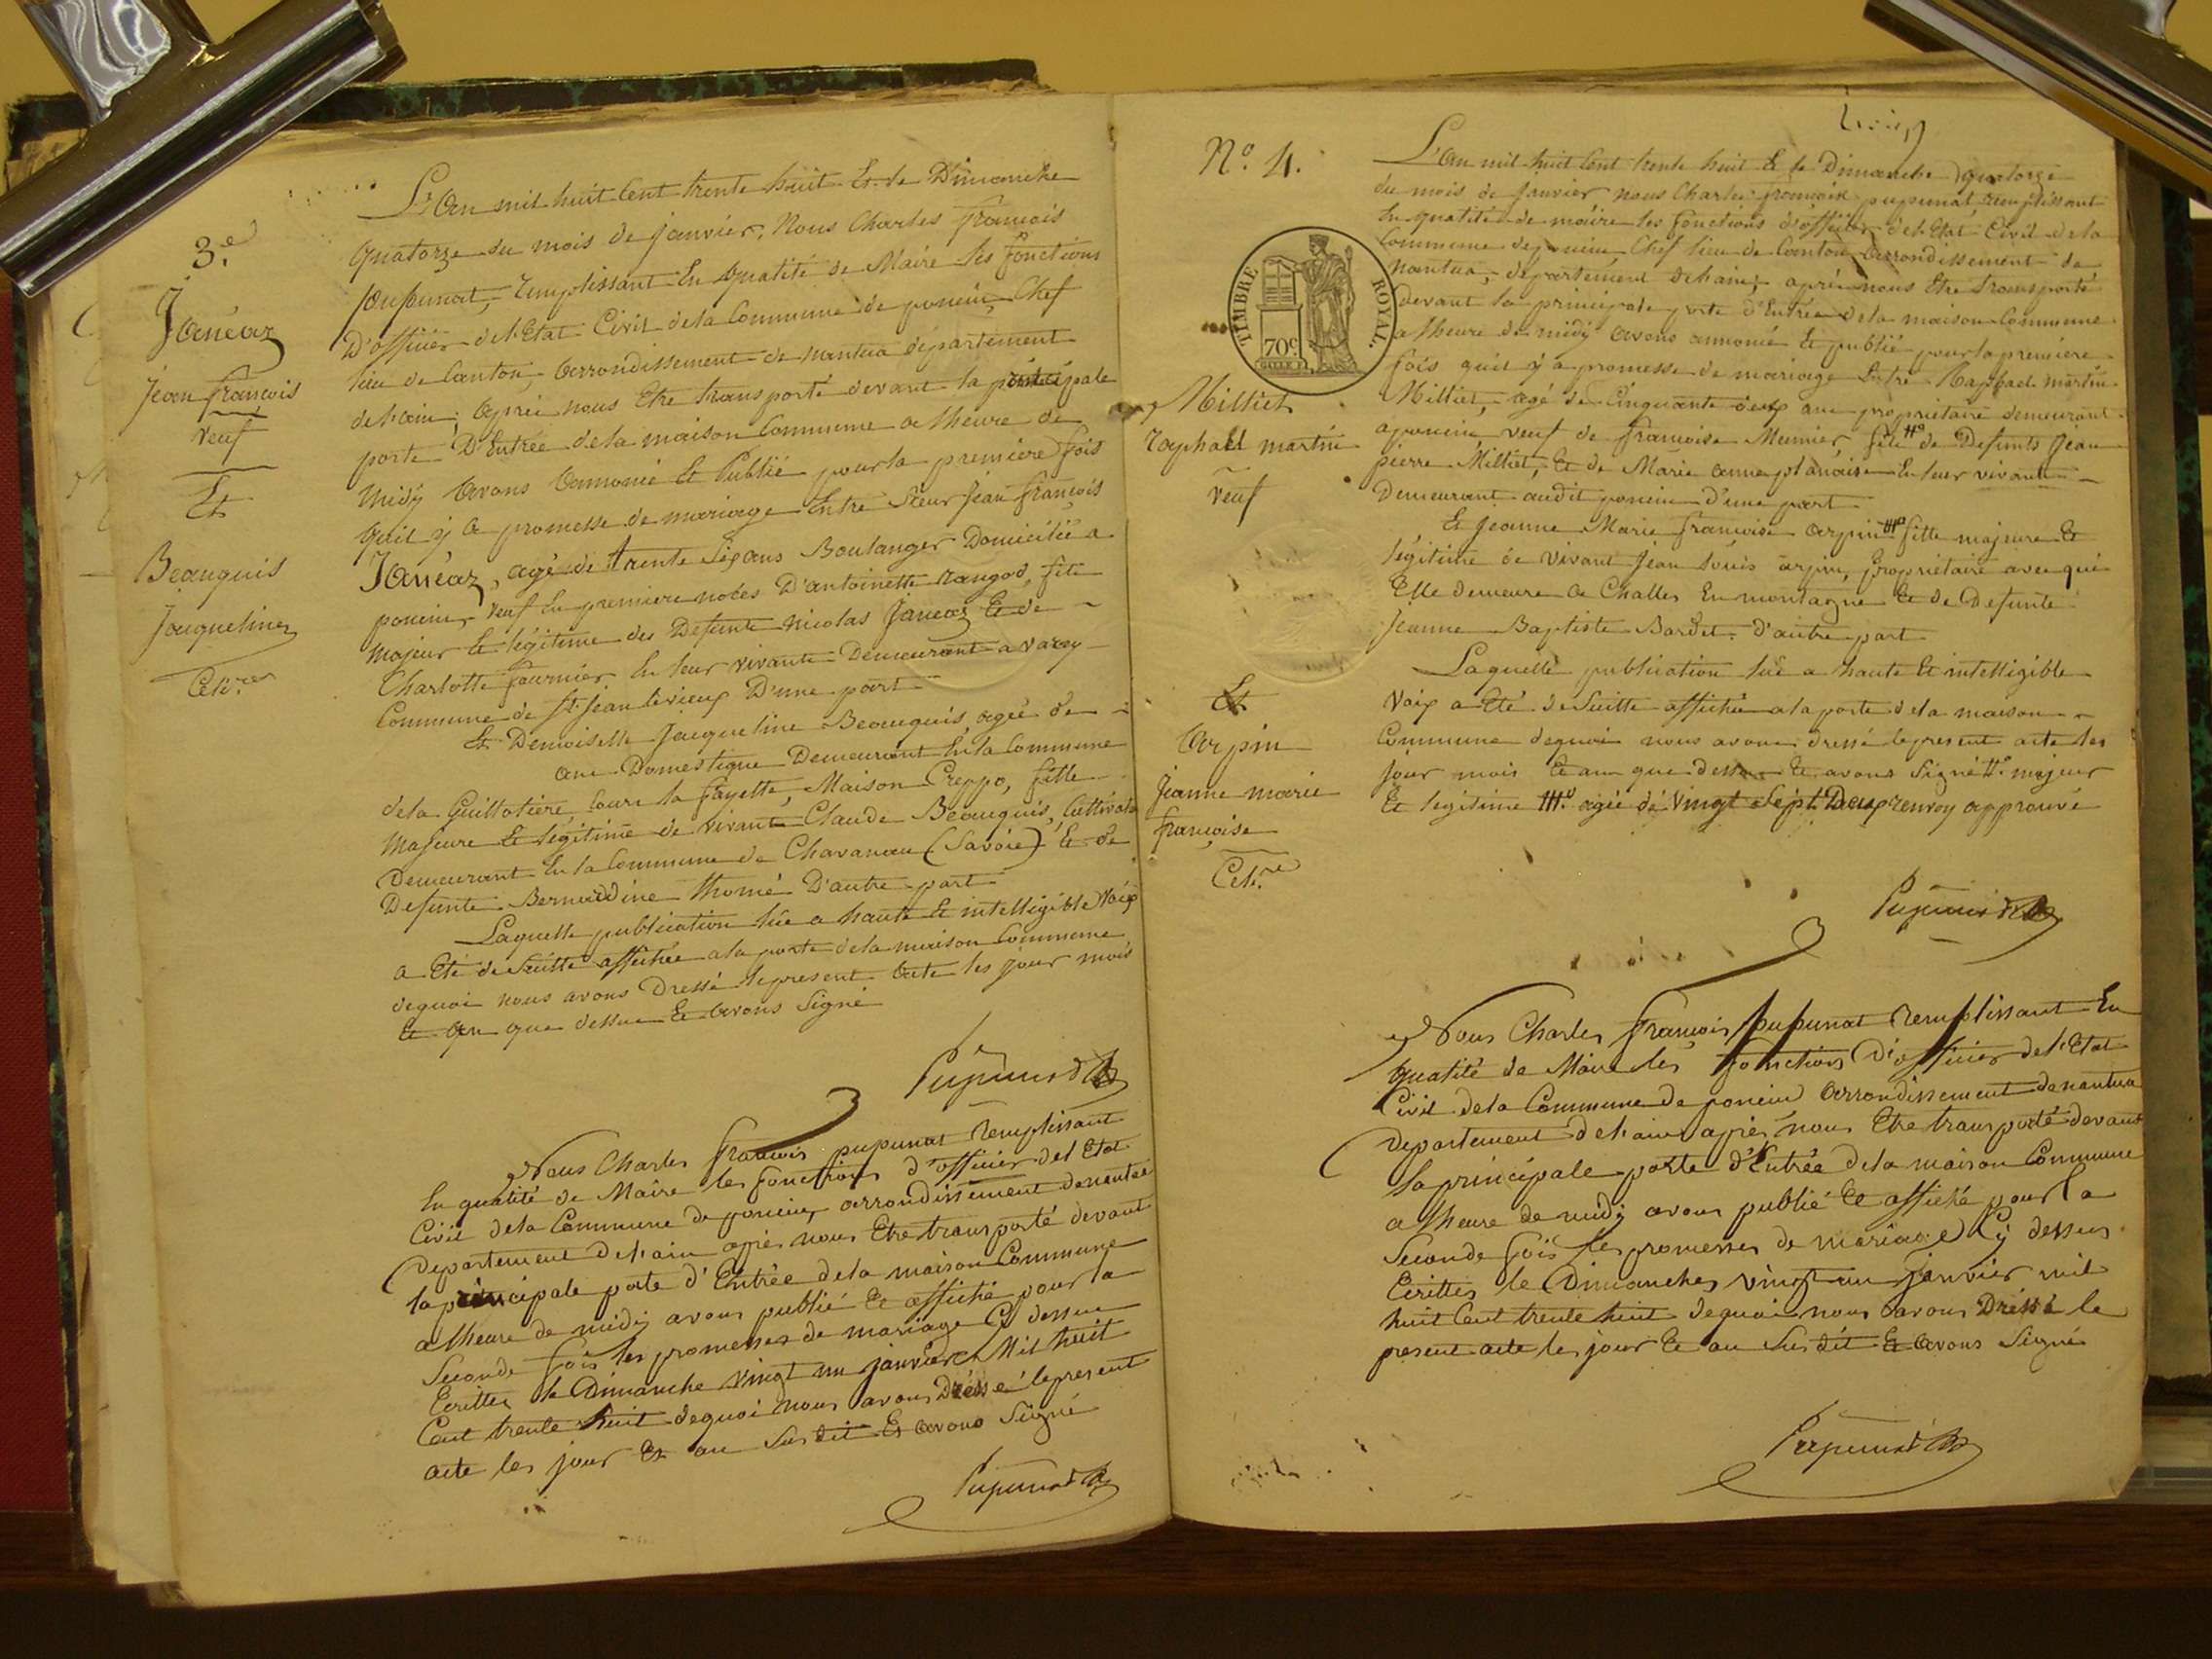 3.e
Janéaz
Jean françois
veuf
Et
Beauquis
Jacqueline
Celi.re
L'an mil huit Cent trente huit Et le Dimanche
quatorze du mois de janvier, Nous Charles françois
pupunat, remplissant En qualité de Maire les fonctions
D'officier del'Etat Civil dela Commune de poncin, Chef
lieu de Canton, arrondissement de nantua département
del'ain, après nous Etre transporté devant la principale
porte D'Entrée dela maison Commune a lheure de
midy avons annoncé Et Publié pour la premiere fois
quil y a promesse de mariage Entre sieur jean françois
Janéaz, agé de trente six ans Boulanger Domicilié a
poncin, veuf En premiere noces D'antoinette rangod, fils
majeur Et légitime des Defunts nicolas janeaz Et de
Charlotte fournier En leur vivants Demeurant a varey
Commune de St jean levieux D'une part
Et Demoiselle jacqueline Beauquis, agée de
ans Domestique Demeurant En la Commune
dela Guillotiere, Cours la fayette, Maison Creppo, fille
majeure Et légitime de vivant Claude Beauquis, Cultivateur
Demeurant En la Commune de Chavanau (Savoie) Et de
Defunte Bernardine thomé D'autre part
Laquelle publication lüe a haute Et intelligible Voix
a Eté desuitte affichée ala porte dela maison Commune
dequoi nous avons Dressé lepresent acte les jour mois
Et an que dessus Et avons Signé
Pupunat
Nous Charles françois pupunat remplissant
En qualité de Maire les fonctions d'officier del'Etat
Civil dela Commune de poncin, arrondissement denantua
Departement del'ain après nous Etre transporté devant
la principale porte d'Entrée dela maison Commune
a lheure de midy avons publié Et affiché pour la
Seconde fois les promesses de mariage Cy dessus
Ecrittes le Dimanche vingt un janvier Mil huit
Cent trente huit dequoi nous avons Dressé lepresent
acte les jour Et an Susdit Et avons Signé
Pupunat
No 4.
TIMBRE ROYAL.
70c
Milliet
raphael martin
veuf
Et
Arpin
jeanne marie
françoise
Celi.re
L'an mil huit Cent trente huit Et le Dimanche quatorze
du mois de janvier, nous Charles françois pupunat remplissant
En qualité de maire les fonctions d'officier del'Etat Civil dela
Commune de poncin, Chef lieu de Canton arrondissement de
nantua, departement Del'ain, après nous Etre transporté
devant la principale porte d'Entrée dela maison Commune
a lheure de midy avons annoncé Et publié pour la premiere
fois quil y a promesse de mariage Entre Raphael martin
Milliet, agé de Cinquante deux ans proprietaire demeurant
a poncin veuf de françoise Meunier, fils #o de Defunts jean
pierre Milliet, Et de Marie anne planaise En leur vivants
Demeurant audit poncin d'une part
Et jeanne Marie françoise arpin ##o fille majeure Et
légitime de vivant jean louis arpin, proprietaire avec qui
Elle demeure a Challes En montagne Et de Defunte
jeanne Baptiste Bardet d'autre part
Laquelle publication lüe a haute Et intelligible
Voix a Eté deSuitte affichée ala porte dela maison
Commune dequoi nous avons dressé lepresent acte les
jour mois Et an que dessus Et avons Signé #o majeur
Et legitime ##o agée de Vingt Sept. Deux renvoy approuvé
Pupunat
Nous Charles françois pupunat remplissant En
qualité de Maire les fonctions D'officier del'Etat
Civil dela Commune de poncin arrondissement denantua
Departement del'ain après nous Etre transporté devant
la principale porte d'Entrée dela maison Commune
a lheure de midy avons publié Et affiché pour la
Seconde fois les promesses de mariage Cy dessus
Ecrittes le Dimanche vingt un janvier mil
huit Cent trente huit dequoi nous avons Dressé le
present acte les jour Et an Susdit Et avons Signé
Pupunat